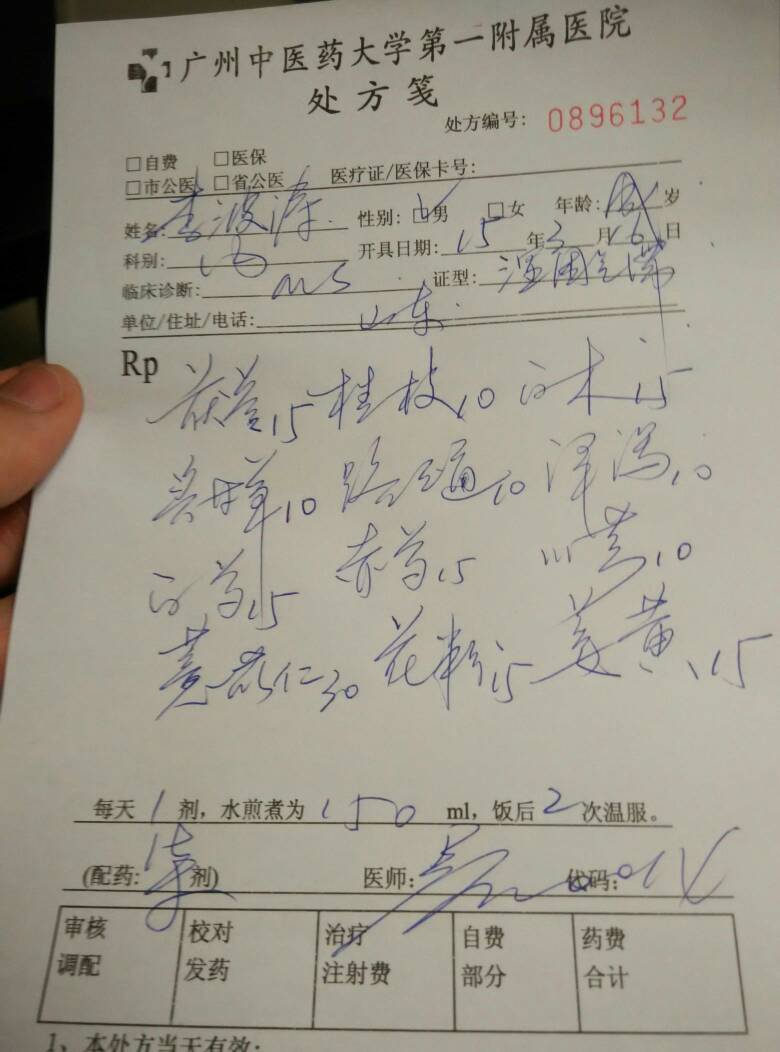 广州中医药大学第一附属医院
处方笺
处方编号: 0896132
□自费 □医保
□市公医 □省公医 医疗证/医保卡号:
姓名: 李波涛 性别: □男 □女 年龄: 岁
科别: 内 开具日期: 15 年 3 月 16 日
临床诊断: 证型:
单位/住址/电话: 山东
Rp
茯苓15 桂枝10 白术15
10 路路通10 泽泻10
白芍15 赤芍15 川芎10
薏苡仁30 花粉15 姜黄15
每天 1 剂, 水煎煮为 150 ml, 饭后 2 次温服。
(配药: 剂) 医师: 代码:
审核 校对 治疗 自费 药费
调配 发药 注射费 部分 合计
1、本处方当天有效;